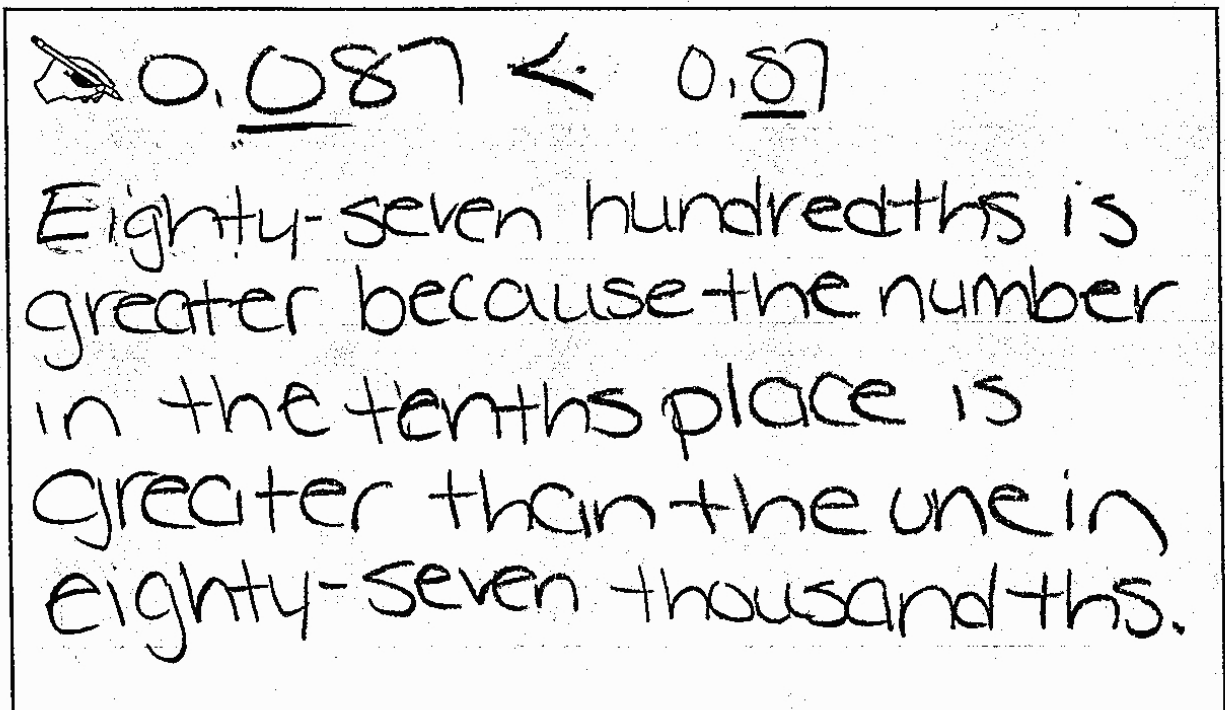 0.087 < 0.87
Eighty-seven hundredths is
greater because the number
in the tenths place is
greater than the one in
eighty-seven thousandths.